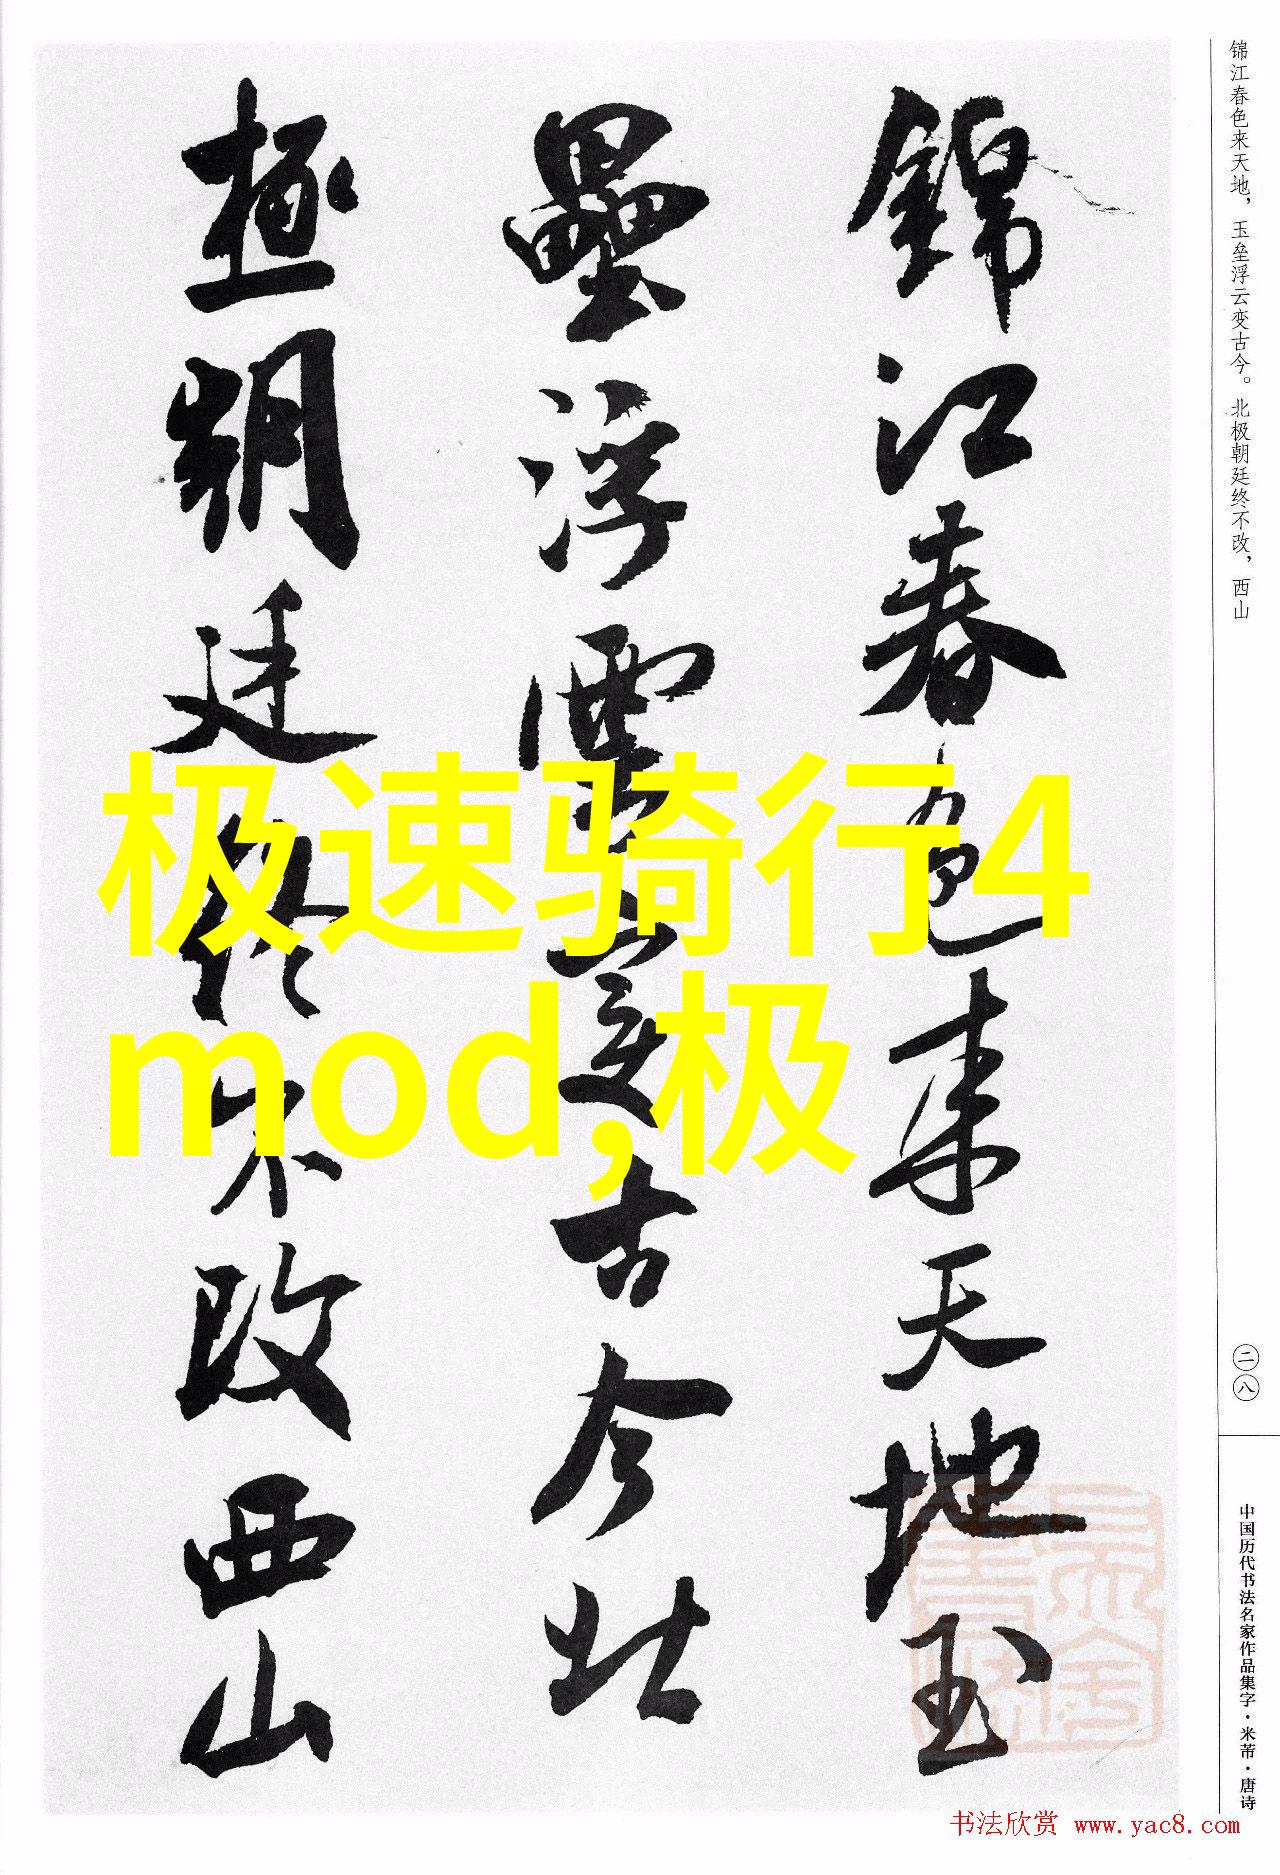 錦江春色来天地玉
壘浮雲變古今北
極朝廷終不改西山
极速骑行4
mod,极
锦江春色来天地，玉垒浮云变古今。北极朝廷终不改，西山
二八
中国历代书法名家作品集字·米芾·唐诗
书法欣赏 www.yac8.com